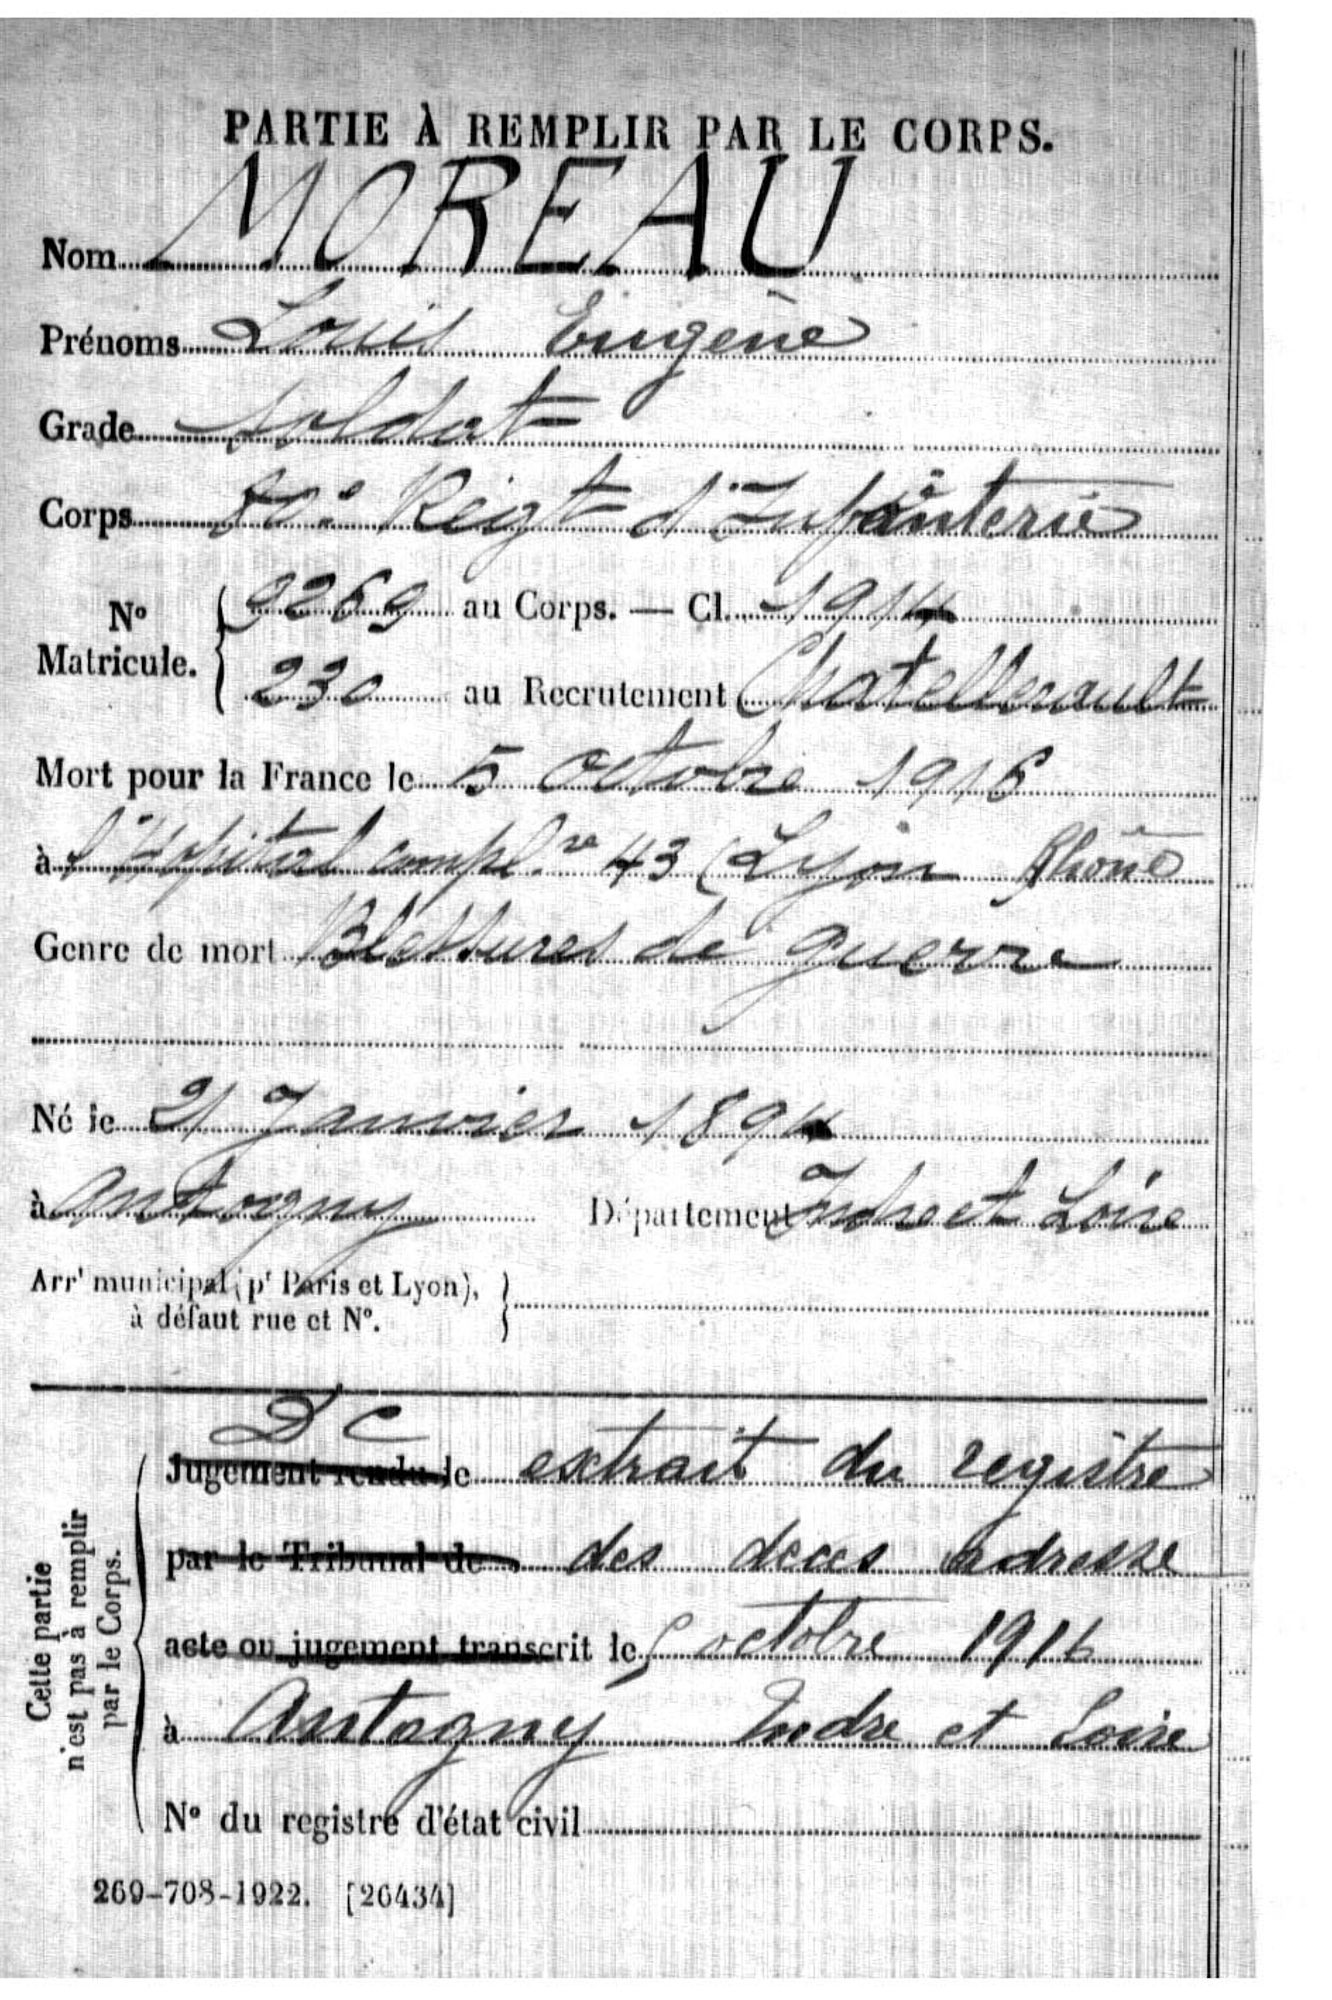 PARTIE À REMPLIR PAR LE CORPS.
Nom MOREAU
Prénoms Louis Eugène
Grade soldat
Corps 80e Régt d'Infanterie
No Matricule. 9269 au Corps. — Cl. 1914
230 au Recrutement Chatellerault
Mort pour la France le 5 octobre 1916
à l'Hôpital compl.re 43 (Lyon Rhône
Genre de mort Blessures de guerre
Né le 21 Janvier 1894
à Antogny Département Indre et Loire
Arrt municipal (pr Paris et Lyon),
à défaut rue et No.
D C
Jugement rendu le extrait du registre
par le Tribunal de des deces adresse
acte ou jugement transcrit le 5 octobre 1916
à Antogny Indre et Loire
No du registre d'état civil
Cette partie
n'est pas à remplir
par le Corps.
269-708-1922. [26434]